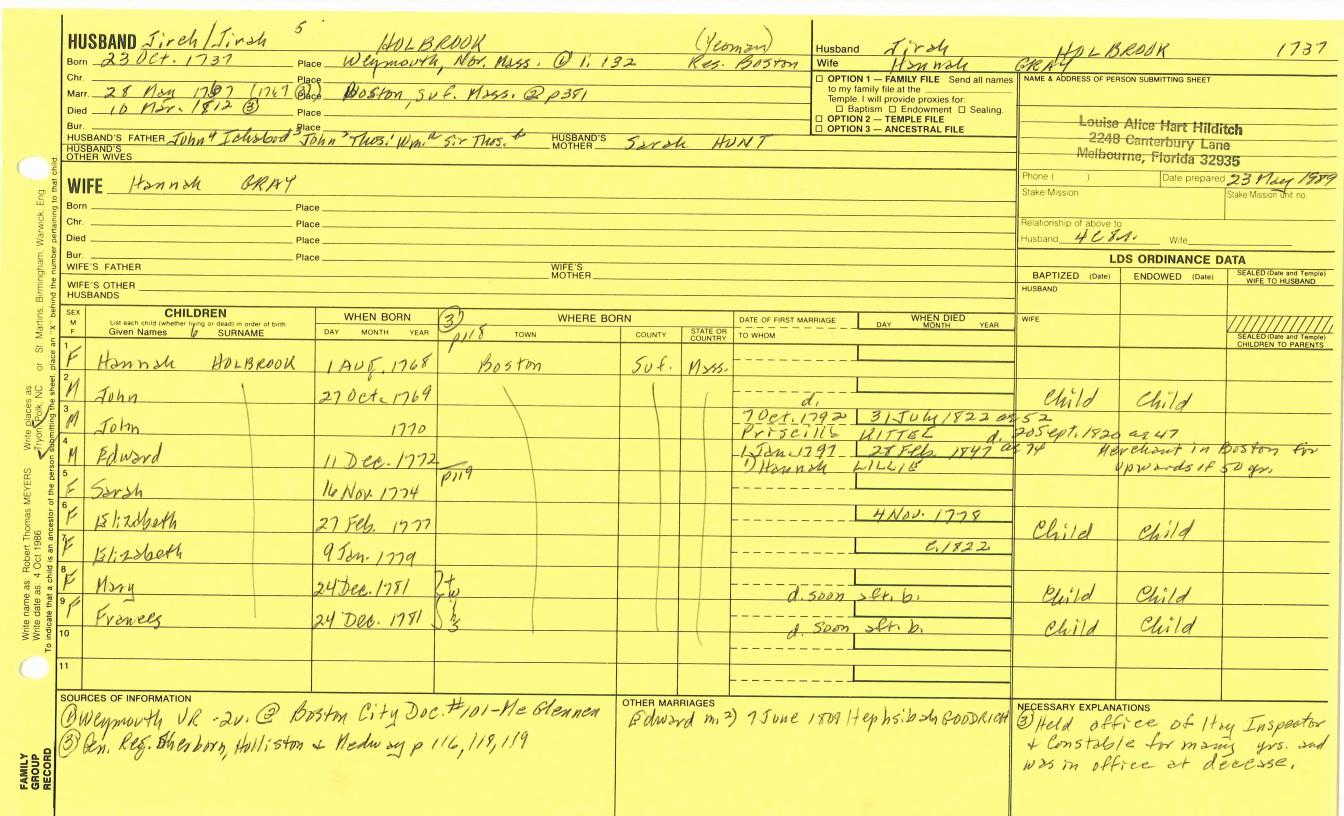 HUSBAND Jireh/Jirah 5 HOLBROOK (Yeoman)
Born 23 Oct. 1737 Place Weymouth, Nor. Mass. @ 1:132 Res. Boston
Chr. Place
Marr. 28 May 1767 (1767 ②) Place Boston, Suf. Mass. ② p381
Died 10 Mar. 1812 ③
Bur. Place
HUSBAND'S FATHER John⁴ Ichabod³ John² Thos.¹ Wm. Sir Thos. HUSBAND'S MOTHER Sarah HUNT
HUSBAND'S OTHER WIVES
Husband Jirah HOLBROOK 1737
Wife Hannah GRAY
☐ OPTION 1 — FAMILY FILE Send all names
to my family file at the
Temple. I will provide proxies for:
☐ Baptism ☐ Endowment ☐ Sealing.
☐ OPTION 2 — TEMPLE FILE
☐ OPTION 3 — ANCESTRAL FILE
NAME & ADDRESS OF PERSON SUBMITTING SHEET
Louise Alice Hart Hilditch
2248 Canterbury Lane
Melbourne, Florida 32935
Phone ( ) Date prepared 23 May 1989
Stake Mission Stake Mission unit no.
Relationship of above to
Husband 4C8r. Wife
WIFE Hannah GRAY
Born Place
Chr. Place
Died Place
Bur. Place
WIFE'S FATHER WIFE'S MOTHER
WIFE'S OTHER HUSBANDS
LDS ORDINANCE DATA
BAPTIZED (Date) ENDOWED (Date) SEALED (Date and Temple) WIFE TO HUSBAND
HUSBAND
WIFE
SEALED (Date and Temple) CHILDREN TO PARENTS
SEX M F CHILDREN WHEN BORN ③ p118 WHERE BORN DATE OF FIRST MARRIAGE WHEN DIED
List each child (whether living or dead) in order of birth
Given Names 6 SURNAME DAY MONTH YEAR TOWN COUNTY STATE OR COUNTRY TO WHOM DAY MONTH YEAR
1 F Hannah HOLBROOK 1 Aug. 1768 Boston Suf. Mass.
2 M John 27 Oct. 1769 d. Child Child
3 M John 1770 7 Oct. 1792 31 July 1822 ae 52
Priscilla d. 20 Sept. 1820 ae 47
4 M Edward 11 Dec. 1772 1 Jan 1797 28 Feb. 1847 ae 74 Merchant in Boston for
p119 1) Hannah LILLIE upwards of 50 yrs.
5 F Sarah 16 Nov. 1774
6 F Elizabeth 27 Feb. 1777 4 Nov. 1778 Child Child
7 F Elizabeth 9 Jan. 1779 c.1822
8 F Mary 24 Dec. 1781 twins d. soon aft. b. Child Child
9 F Frances 24 Dec. 1781 d. soon aft. b. Child Child
10
11
SOURCES OF INFORMATION
① Weymouth VR -2v. ② Boston City Doc. #101-McGlennen
③ Gen. Reg. Sherborn, Holliston & Medway p 116, 118, 119
OTHER MARRIAGES
Edward m. 2) 7 June 1809 Hephsibah GOODRICH
NECESSARY EXPLANATIONS
③ Held office of Hay Inspector
& Constable for many yrs. and
was in office at decease.
Write name as: Robert Thomas MEYERS Write places as Tryon, Polk, NC or St. Martins, Birmingham, Warwick, Eng
Write date as: 4 Oct 1986
To indicate that a child is an ancestor of the person submitting the sheet, place an "X" behind the number pertaining to that child.
FAMILY
GROUP
RECORD